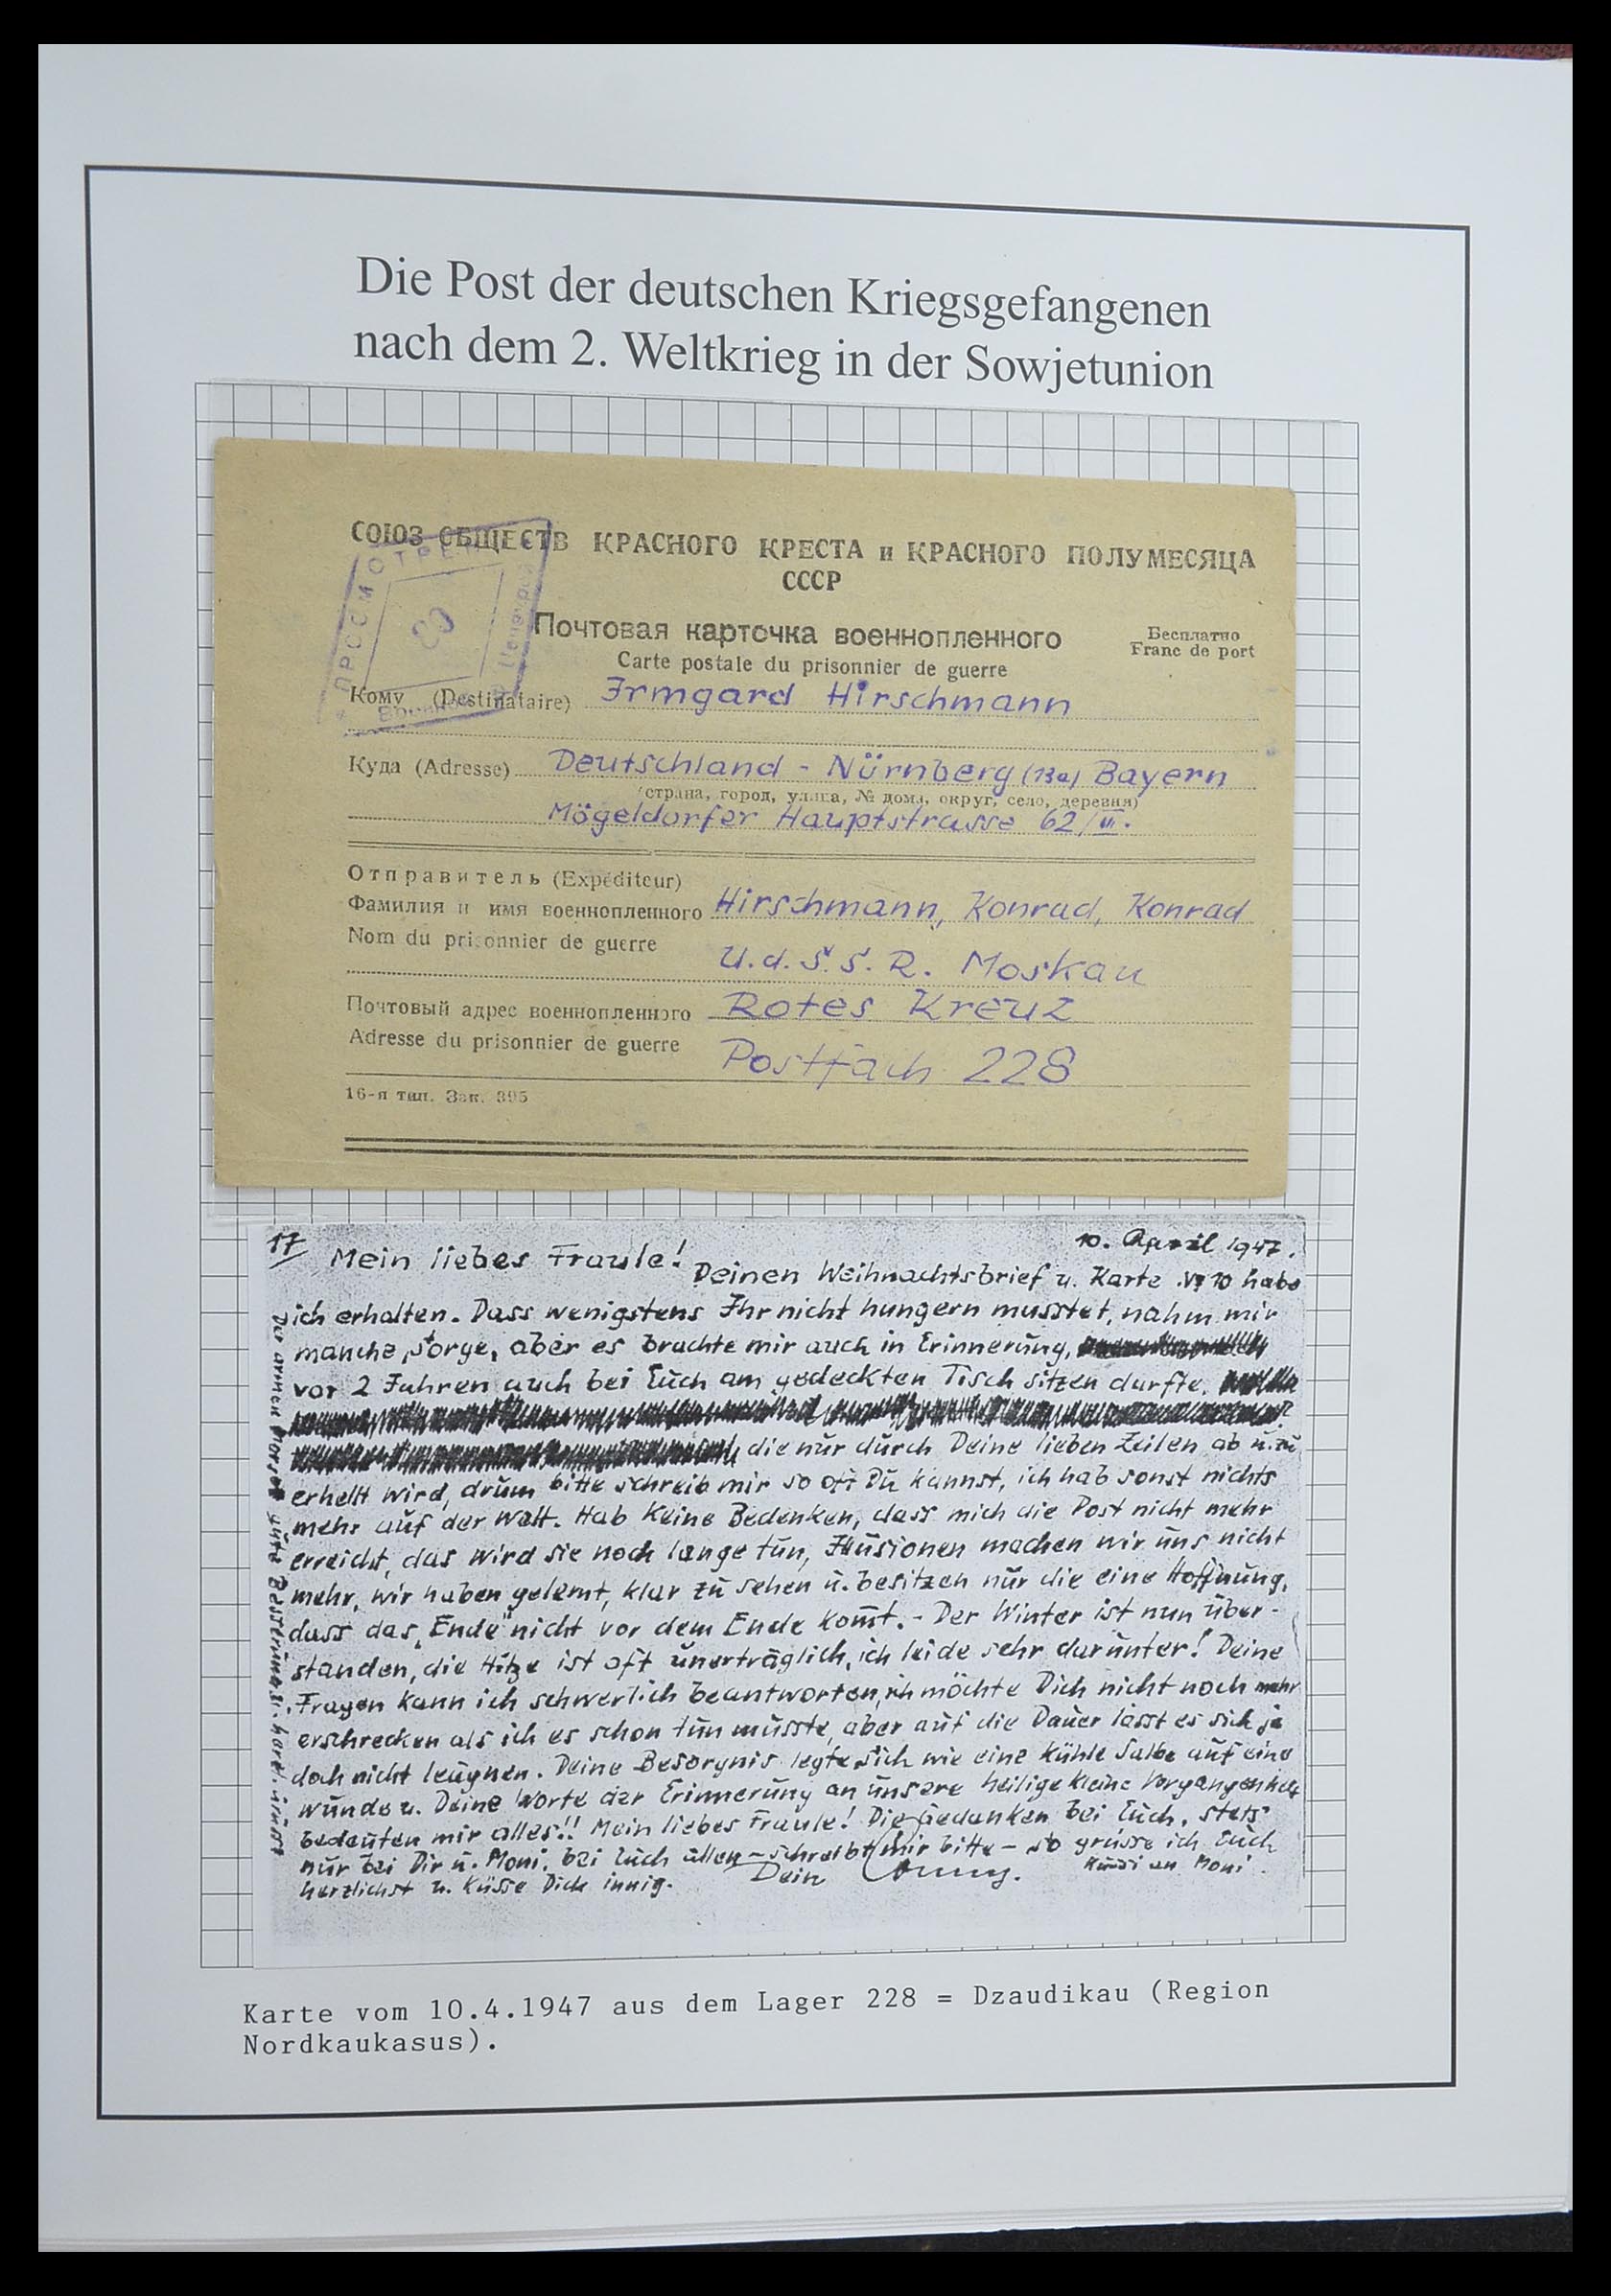 Die Post der deutschen Kriegsgefangenen
nach dem 2. Weltkrieg in der Sowjetunion
СОЮЗ ОБЩЕСТВ КРАСНОГО КРЕСТА и КРАСНОГО ПОЛУМЕСЯЦА
СССР
ПРОСМОТРЕНО
Почтовая карточка военнопленного
Бесплатно
Carte postale du prisonnier de guerre
Franc de port
Кому (Destinataire) Irmgard Hirschmann
Куда (Adresse) Deutschland - Nürnberg (13a) Bayern
(страна, город, улица, № дома, округ, село, деревня)
Mögeldorfer Hauptstrasse 62/III.
Отправитель (Expéditeur)
Фамилия и имя военнопленного Hirschmann, Konrad, Konrad
Nom du prisonnier de guerre
U.d.S.S.R. Moskau
Почтовый адрес военнопленного Rotes Kreuz
Adresse du prisonnier de guerre Postfach 228
16-я тип. Зак. 395
17 10. April 1947.
Mein liebes Fraule! Deinen Weihnachtsbrief u. Karte 10 habe
ich erhalten. Dass wenigstens Ihr nicht hungern musstet, nahm mir
manche Sorge, aber es brachte mir auch in Erinnerung,
vor 2 Jahren auch bei Euch am gedeckten Tisch sitzen durfte.
die nur durch Deine lieben Zeilen ab u. zu
erhellt wird, drum bitte schreib mir so oft Du kannst, ich hab sonst nichts
mehr auf der Welt. Hab keine Bedenken, dass mich die Post nicht mehr
erreicht, das wird sie noch lange tun, Illusionen machen wir uns nicht
mehr, wir haben gelernt, klar zu sehen u. besitzen nur die eine Hoffnung,
dass das "Ende" nicht vor dem Ende kom̄t. - Der Winter ist nun über-
standen, die Hitze ist oft unerträglich, ich leide sehr darunter! Deine
Fragen kann ich schwerlich beantworten, ich möchte Dich nicht noch mehr
erschrecken als ich es schon tun musste, aber auf die Dauer lässt es sich ja
doch nicht leugnen. Deine Besorgnis legte sich wie eine kühle Salbe auf eine
Wunde u. Deine Worte der Erinnerung an unsere heilige kleine Vergangenheit
bedeuten mir alles!! Mein liebes Fraule! Die Gedanken bei Euch, stets
nur bei Dir u. Moni, bei Euch allen - schreibt mir bitte - so grüsse ich Euch
herzlichst u. küsse Dich innig. Dein
Bussi an Moni.
Der armen gute Besserung
Karte vom 10.4.1947 aus dem Lager 228 = Dzaudikau (Region
Nordkaukasus).